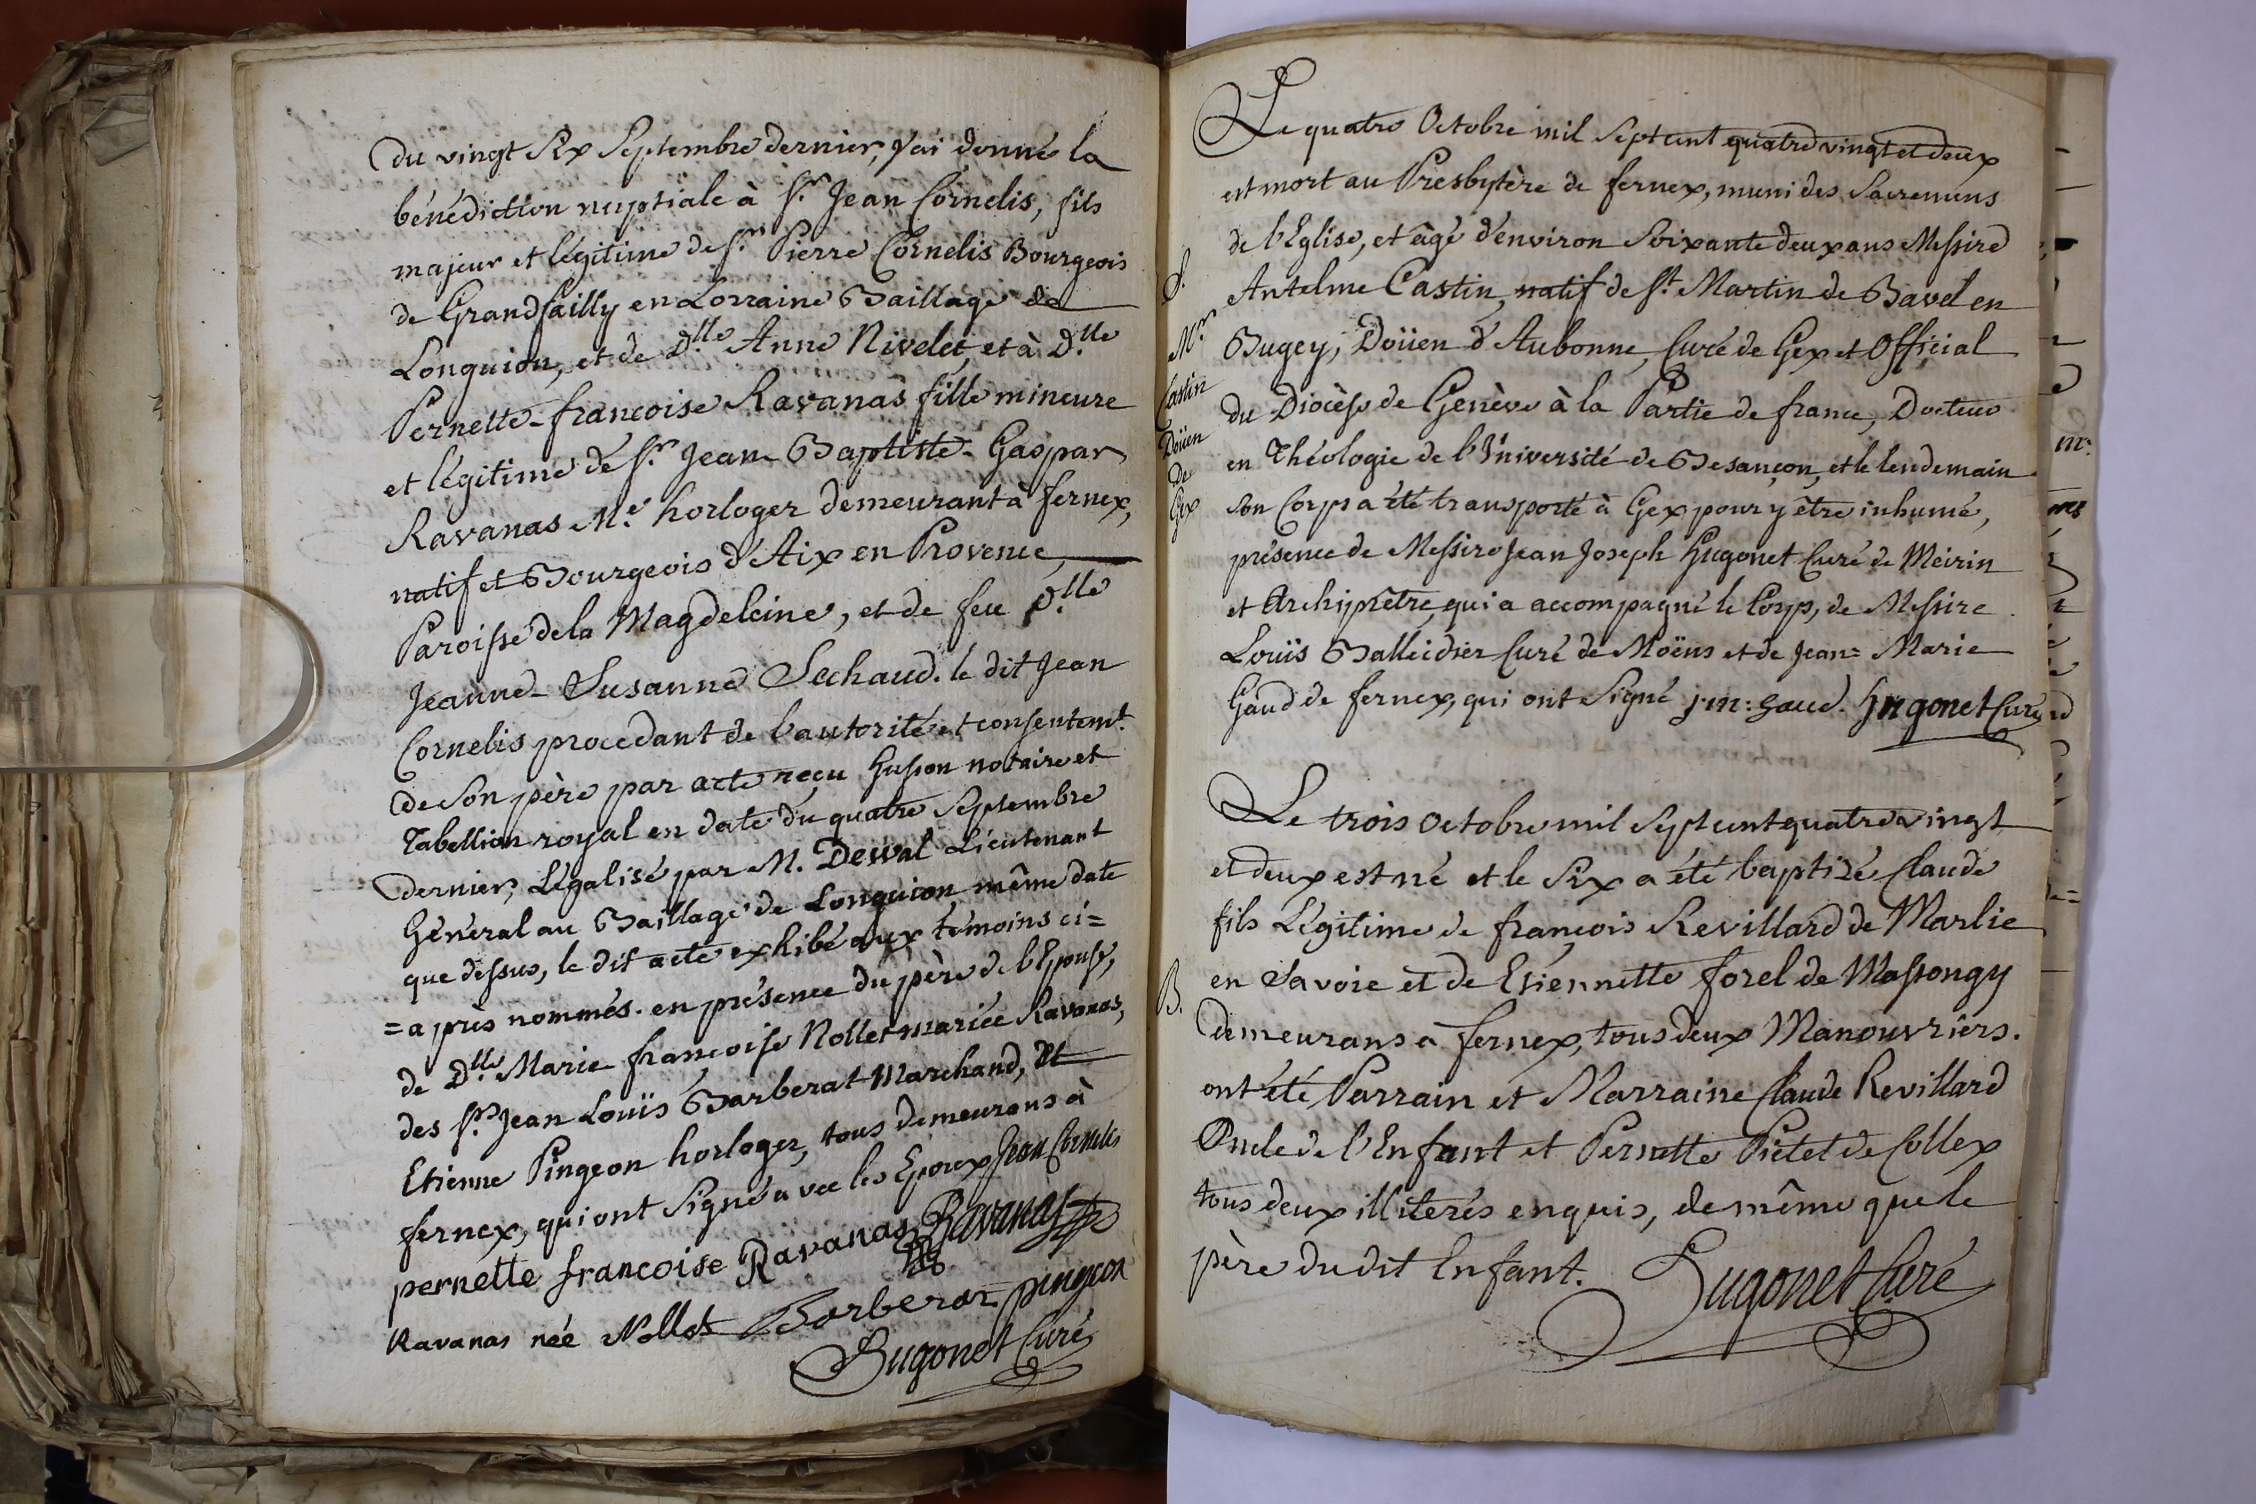 du vingt Six Septembre dernier, j'ai donné la
bénédiction nuptiale à Sr. Jean Cornelis, fils
majeur et légitime de Sr. Pierre Cornelis Bourgeois
de Grandfailly en Lorraine Baillage de
Longuion, et de Dlle. Anne Nivelet, et à Dlle.
Pernette-francoise Ravanas fille mineure
et légitime de Sr. Jean-Baptiste-Gaspar
Ravanas Me. horloger demeurant à fernex,
natif et Bourgeois d'Aix en Provence,
Paroisse de la Magdeleine, et de feu Dlle.
Jeanne-Susanne Sechaud. le dit Jean
Cornelis procedant de l'autorité et consentemt.
de Son père par acte reçu Husson notaire et
Tabellion royal en date du quatre Septembre
dernier, Légalisé par M. Desval Lieutenant
Général au Baillage de Longuion, même date
que dessus, le dit acte exhibé aux témoins ci=
=après nommés. en présence du père de l'Epouse,
de Dlle. Marie françoise Nollet mariée Ravanas,
des Srs. Jean Louïs Barberat Marchand, et
Etienne Pingeon horloger, tous demeurans à
fernex, qui ont Signé avec les Epoux Jean Cornelis
pernette francoise Ravanas Ravanas
Ravanas née Nollet Barberat pingeon
Hugonet Curé
Le quatre Octobre mil Sept cent quatre vingt et deux
est mort au Presbytère de fernex, muni des Sacremens
de l'Eglise, et âgé d'environ Soixante deux ans Messire
Antelme Castin, natif de St. Martin de Bavel en
Bugey, Doüen d'Aubonne, Curé de Gex et Official
du Diocèse de Genève à la Partie de france, Docteur
en Théologie de l'Université de Besançon, et le lendemain
Son Corps a été transporté à Gex pour y être inhumé,
présence de Messire Jean Joseph Hugonet Curé de Meirin
et Archiprêtre, qui a accompagné le Corps, de Messire
Louïs Balleidier Curé de Moëns et de Jean= Marie
Gaud de fernex, qui ont Signé j:m: Gaud. Hugonet Curé
S.
Mre
Castin
Doüen
De
Gex
Le trois Octobre mil Sept cent quatre vingt
et deux est né et le Six a été baptizé Claude
fils Légitime de françois Revillard de Marlie
en Savoie et de Etiennette forel de Massongy
B.
demeurans à fernex, tous deux Manouvriers.
ont été Parrain et Marraine Claude Revillard
Oncle de l'Enfant et Pernette Pictet de Collex
tous deux illiterés enquis, de même que le
père du dit Enfant. Hugonet Curé